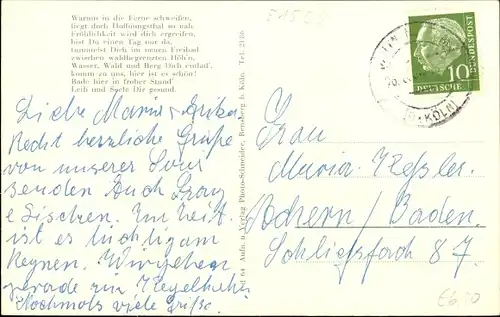 Warum in die Ferne schweifen,
liegt doch Hoffnungsthal so nah.
Fröhlichkeit wird dich ergreifen,
bist Du einen Tag nur da,
tummelst Dich im neuen Freibad
zwischen waldbegrenzten Höh'n.
Wasser, Wald und Berg Dich einlad',
komm zu uns, hier ist es schön!
Bade hier in froher Stund'
Leib und Seele Dir gesund.
Liebe Maria + Erika
Recht herzliche Grüße
von unserer Tour
senden Euch Franz
Lieschen. Im
ist es tüchtig am
Regnen. Wir gehen
gerade zur
Nochmals viele Grüße.
Aufn. u. Verlag Photo-Schneider, Bensberg b. Köln, Tel. 2126
DEUTSCHE BUNDESPOST
10
(BZ. KÖLN)
Frau
Maria Keßler.
Achern / Baden.
Schließfach 87.